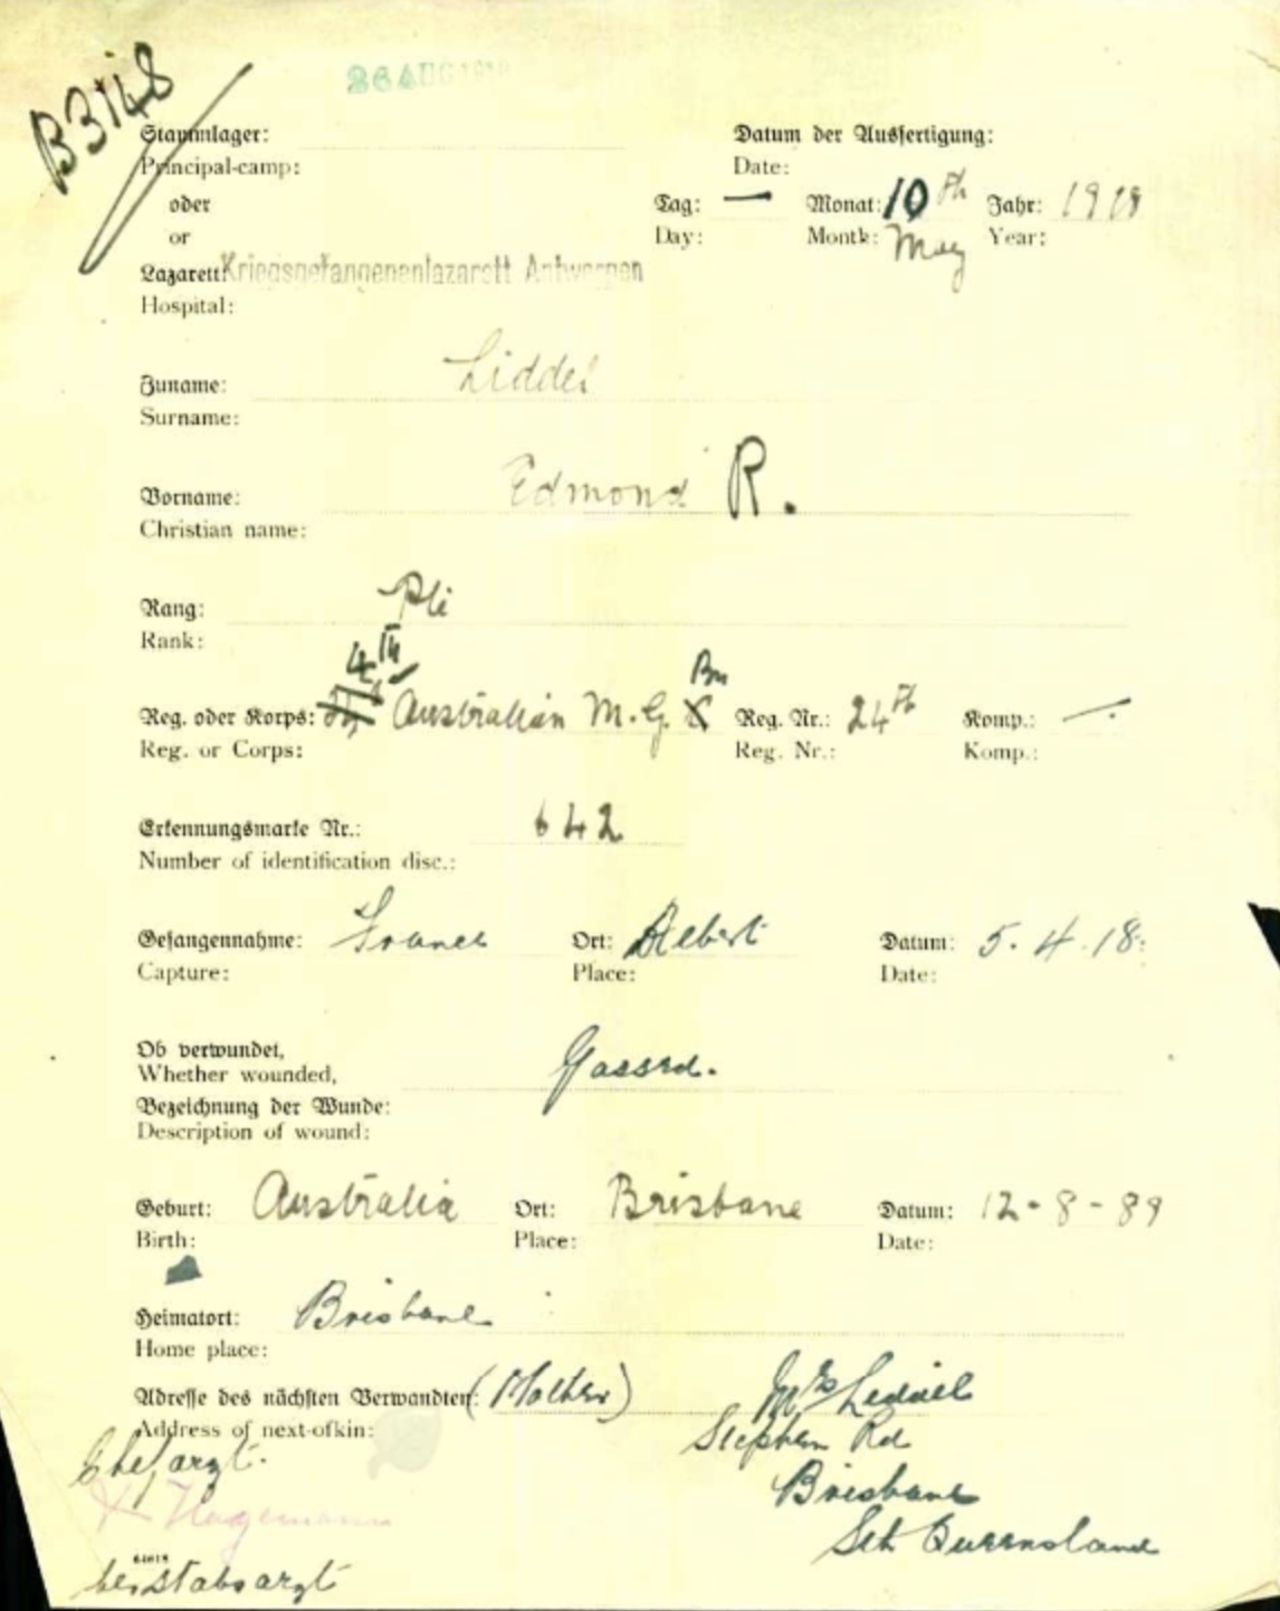 B3148
26 AUG 1918
Stammlager: Datum der Ausfertigung:
Principal-camp: Date:
oder Tag: — Monat: 10th Jahr: 1918
or Day: Month: May Year:
Lazarett: Kriegsgefangenenlazarett Antwerpen
Hospital:
Zuname: Liddel
Surname:
Vorname: Edmond R.
Christian name:
Rang: Pte
Rank:
4th Bn
Reg. oder Korps: Australian M.G. Reg. Nr.: 24th Komp.: —
Reg. or Corps: Reg. Nr.: Komp.:
Erkennungsmarke Nr.: 642
Number of identification disc.:
Gefangennahme: France Ort: Albert Datum: 5.4.18.
Capture: Place: Date:
Ob verwundet,
Whether wounded, Gassed.
Bezeichnung der Wunde:
Description of wound:
Geburt: Australia Ort: Brisbane Datum: 12-8-89
Birth: Place: Date:
Heimatort: Brisbane
Home place:
Adresse des nächsten Verwandten: (Mother) Mrs Liddel
Address of next-ofkin: Stephen Rd
Chefarzt. Brisbane
Hagemann Sth Queensland
64618
berstabsarzt